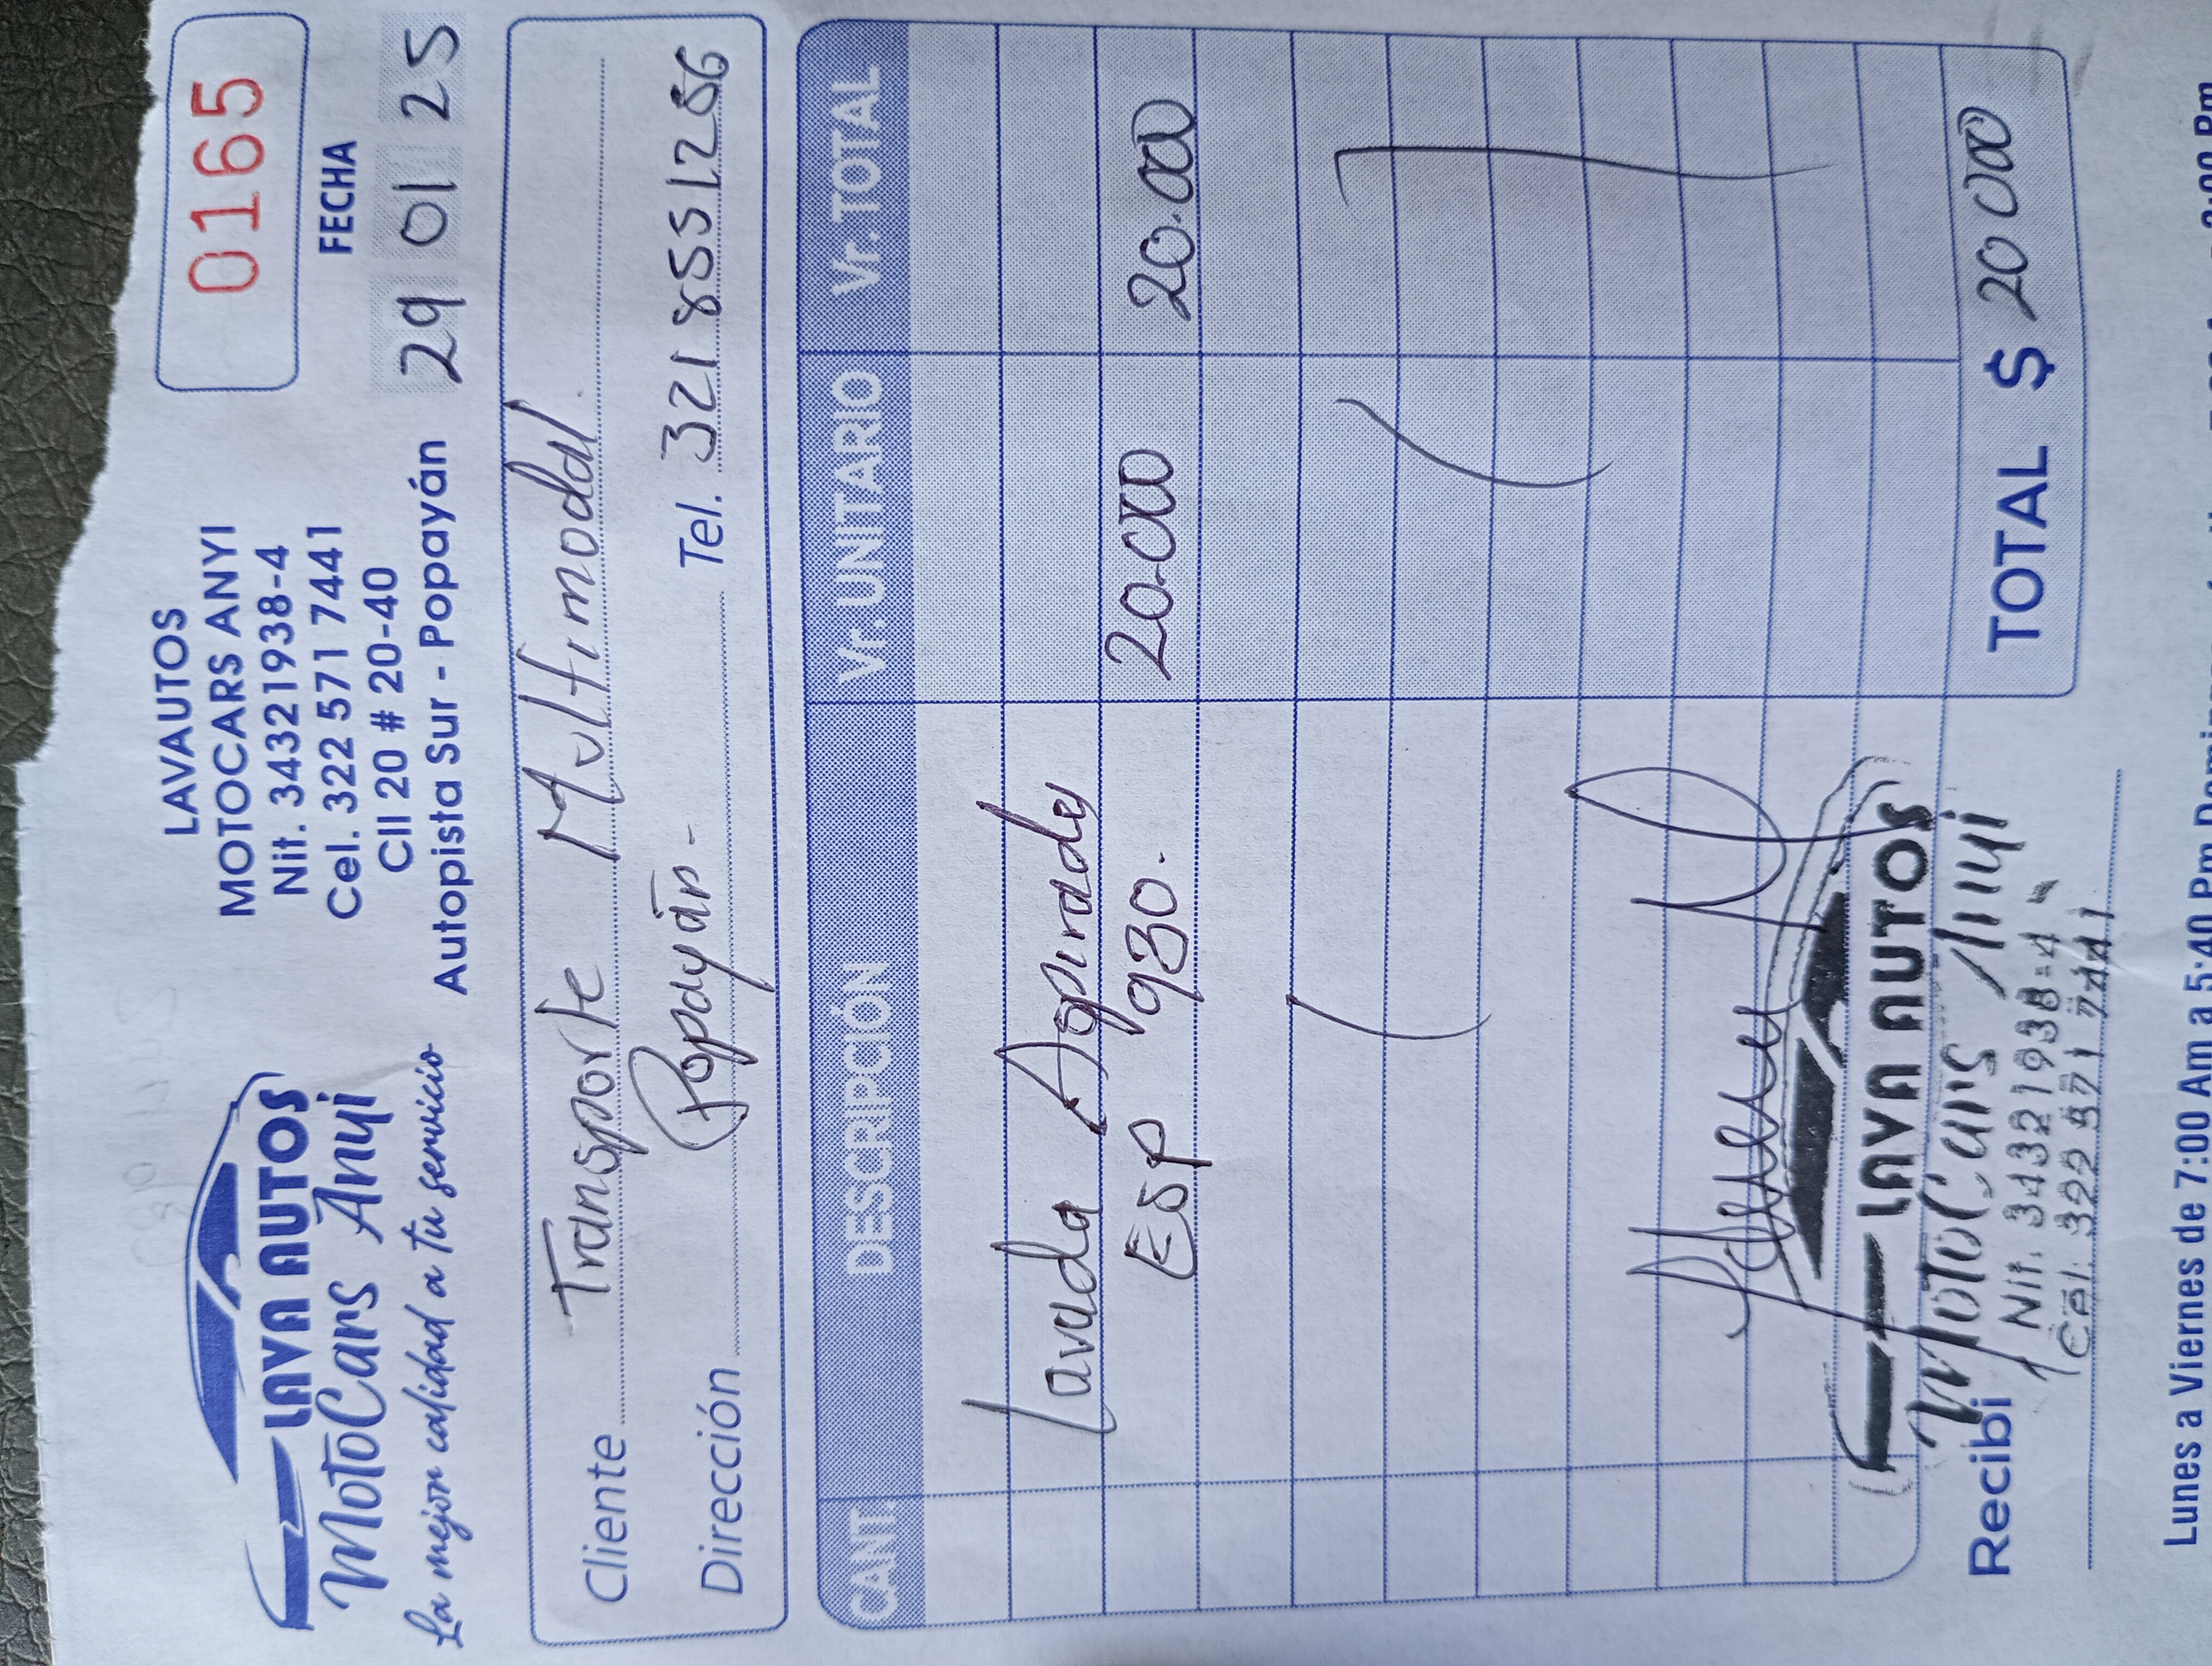 LAVA AUTOS
MotoCars Anyi
La mejor calidad a tu servicio
LAVAUTOS
MOTOCARS ANYI
Nit. 34321938-4
Cel. 322 571 7441
Cll 20 # 20-40
Autopista Sur - Popayán
0165
FECHA
29 01 25
Cliente Transporte Multimodal.
Dirección Popayán- Tel. 321 8551286
CANT. DESCRIPCIÓN Vr. UNITARIO Vr. TOTAL
Lavada Aspirada
ESP 930. 20.000 20.000
TOTAL $ 20 000
LAVA AUTOS
MotoCars Anyi
Nit. 34321938-4
Cel. 322 571 7441
Recibi
Lunes a Viernes de 7:00 Am a 5:40 Pm